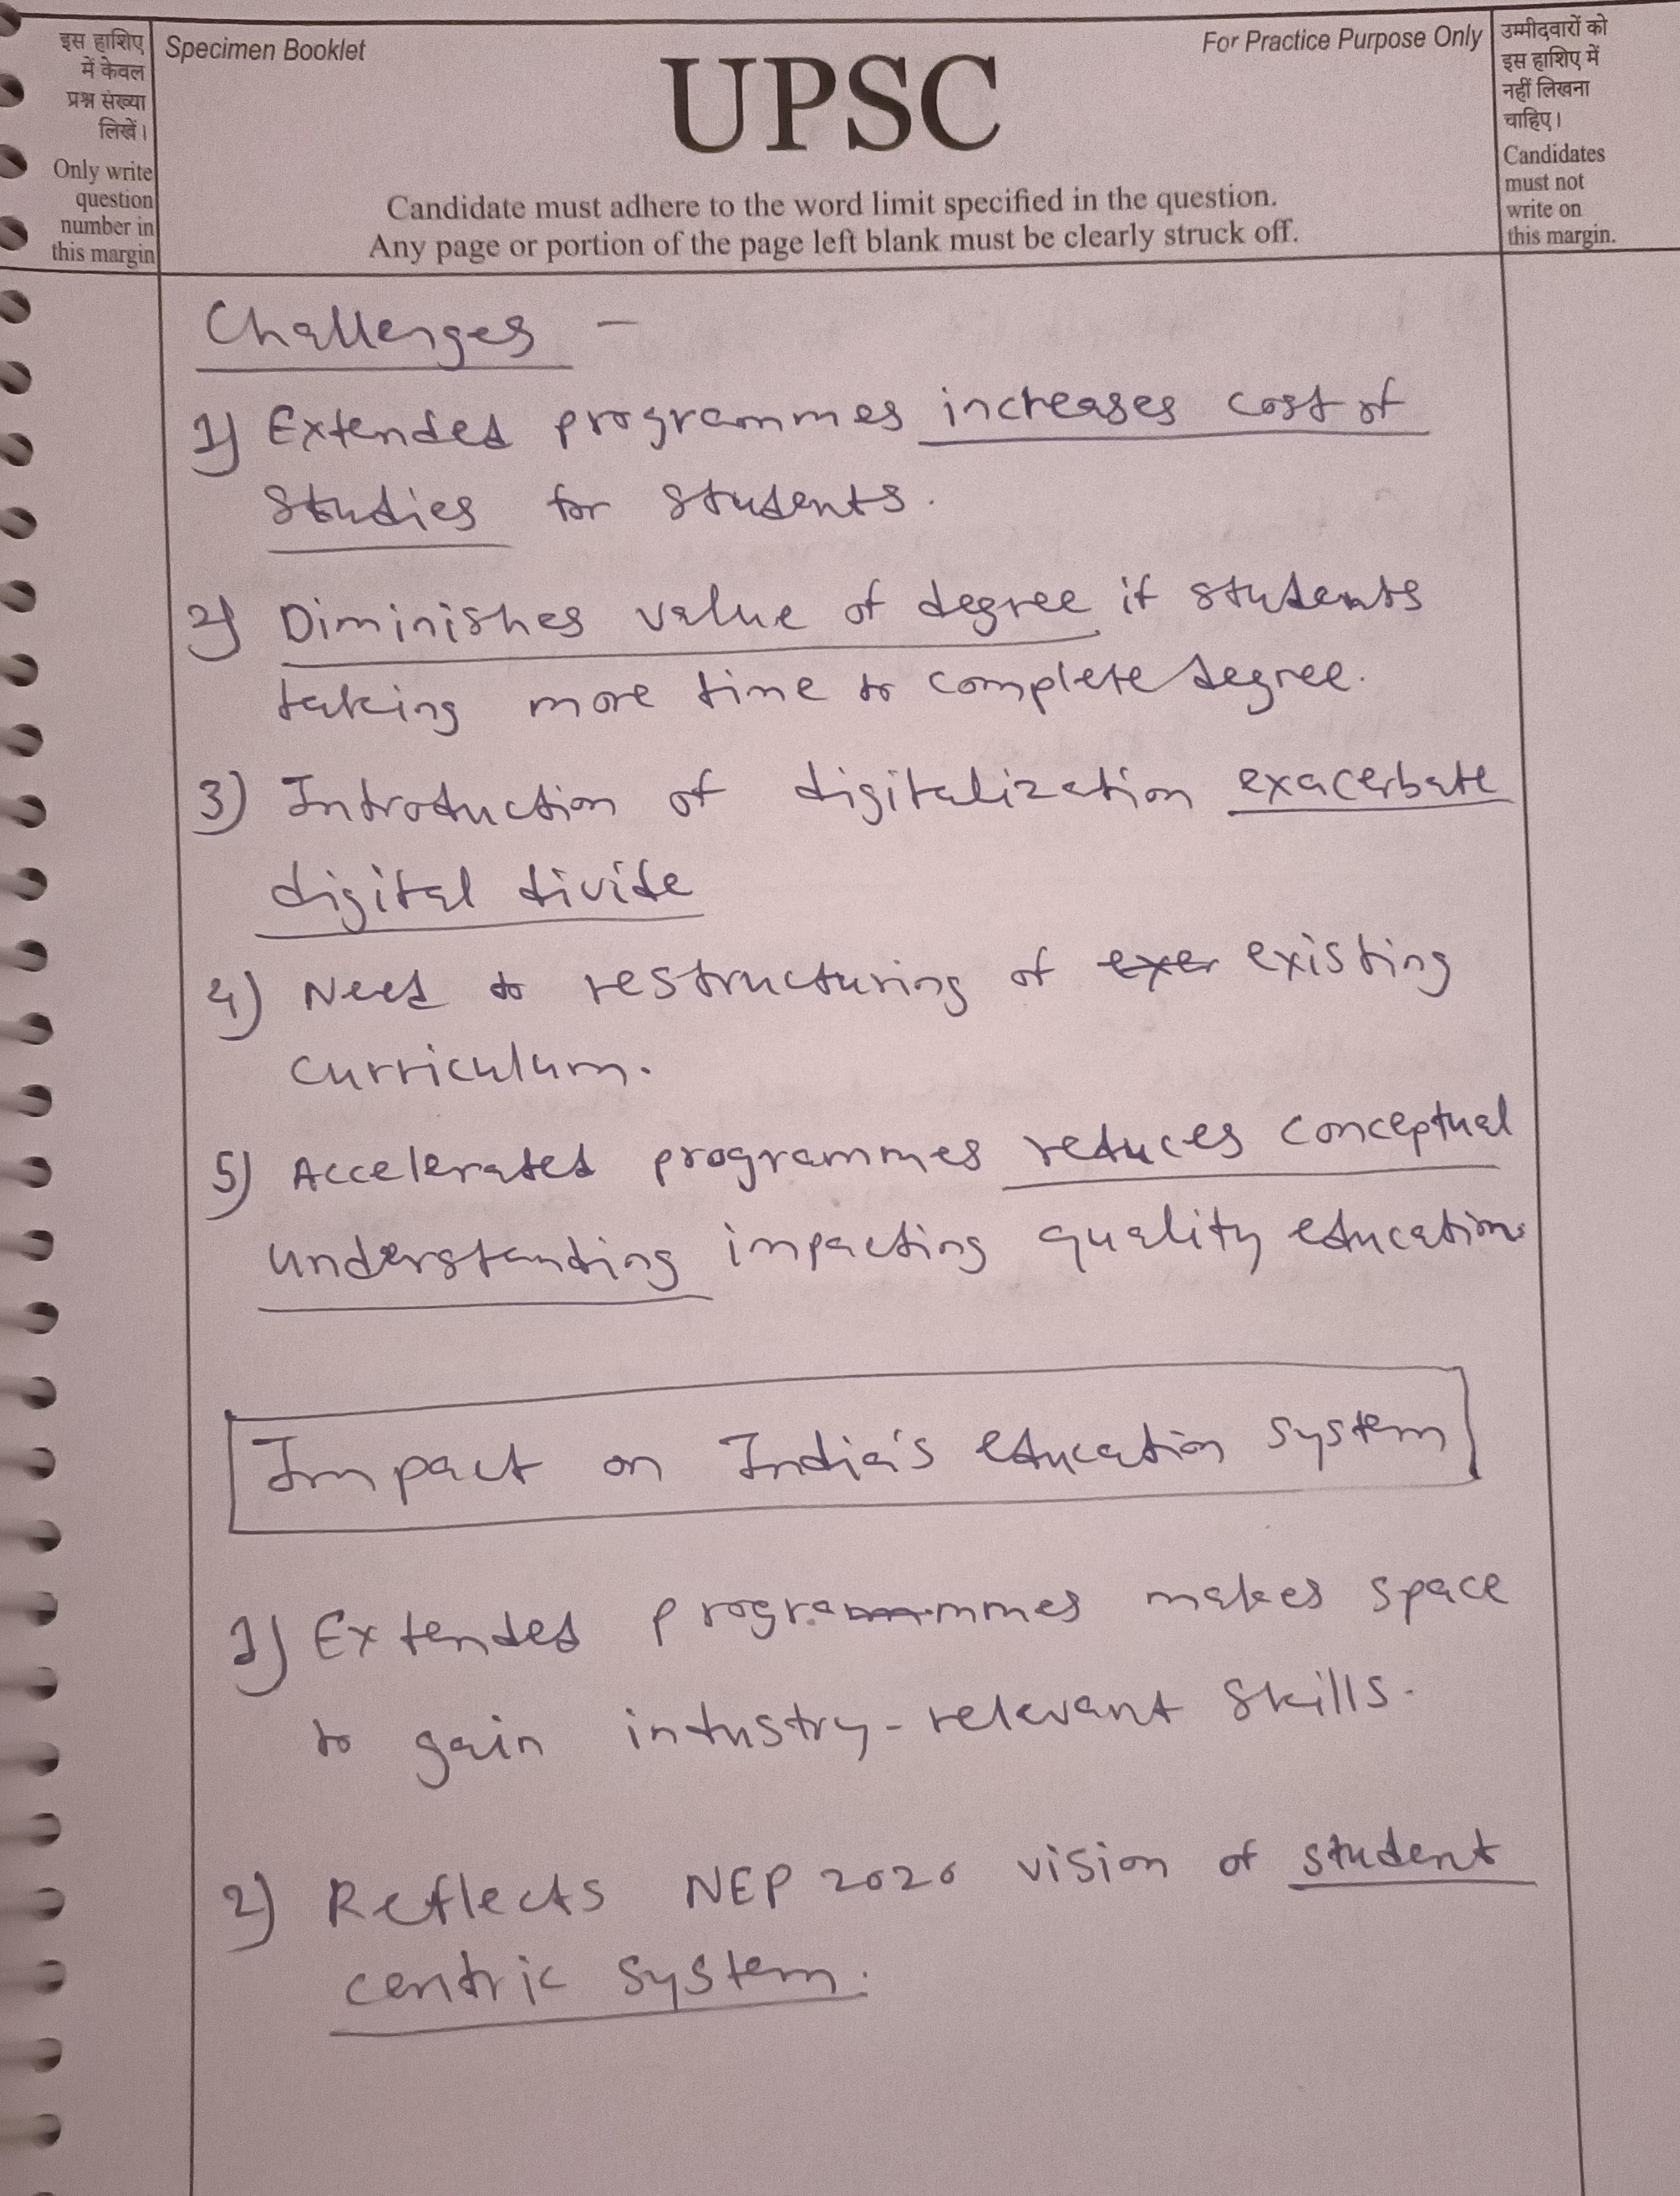 इस हाशिए
में केवल
प्रश्न संख्या
लिखें।
Only write
question
number in
this margin
Specimen Booklet
For Practice Purpose Only
UPSC
Candidate must adhere to the word limit specified in the question.
Any page or portion of the page left blank must be clearly struck off.
उम्मीदवारों को
इस हाशिए में
नहीं लिखना
चाहिए।
Candidates
must not
write on
this margin.
Challenges –
1) Extended programmes increases cost of
studies for students.
2) Diminishes value of degree if students
taking more time to complete degree.
3) Introduction of digitalization exacerbate
digital divide
4) Need to restructuring of exer existing
curriculum.
5) Accelerated programmes reduces conceptual
understanding impacting quality education.
Impact on India's education system
1) Extended programmes makes space
to gain industry-relevant skills.
2) Reflects NEP 2020 vision of student
centric system.